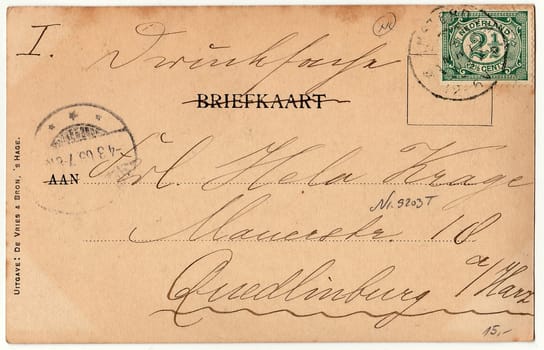 I.
Drucksache
NEDERLAND
2½
2½ CENT
BRIEFKAART
-4.3.05.7-8
AAN
Frl. Hela Krage
Nr. 9203 T
Mauerstr. 18
Quedlinburg a/Harz
15,-
UITGAVE: DE VRIES & BRON, 'S HAGE.